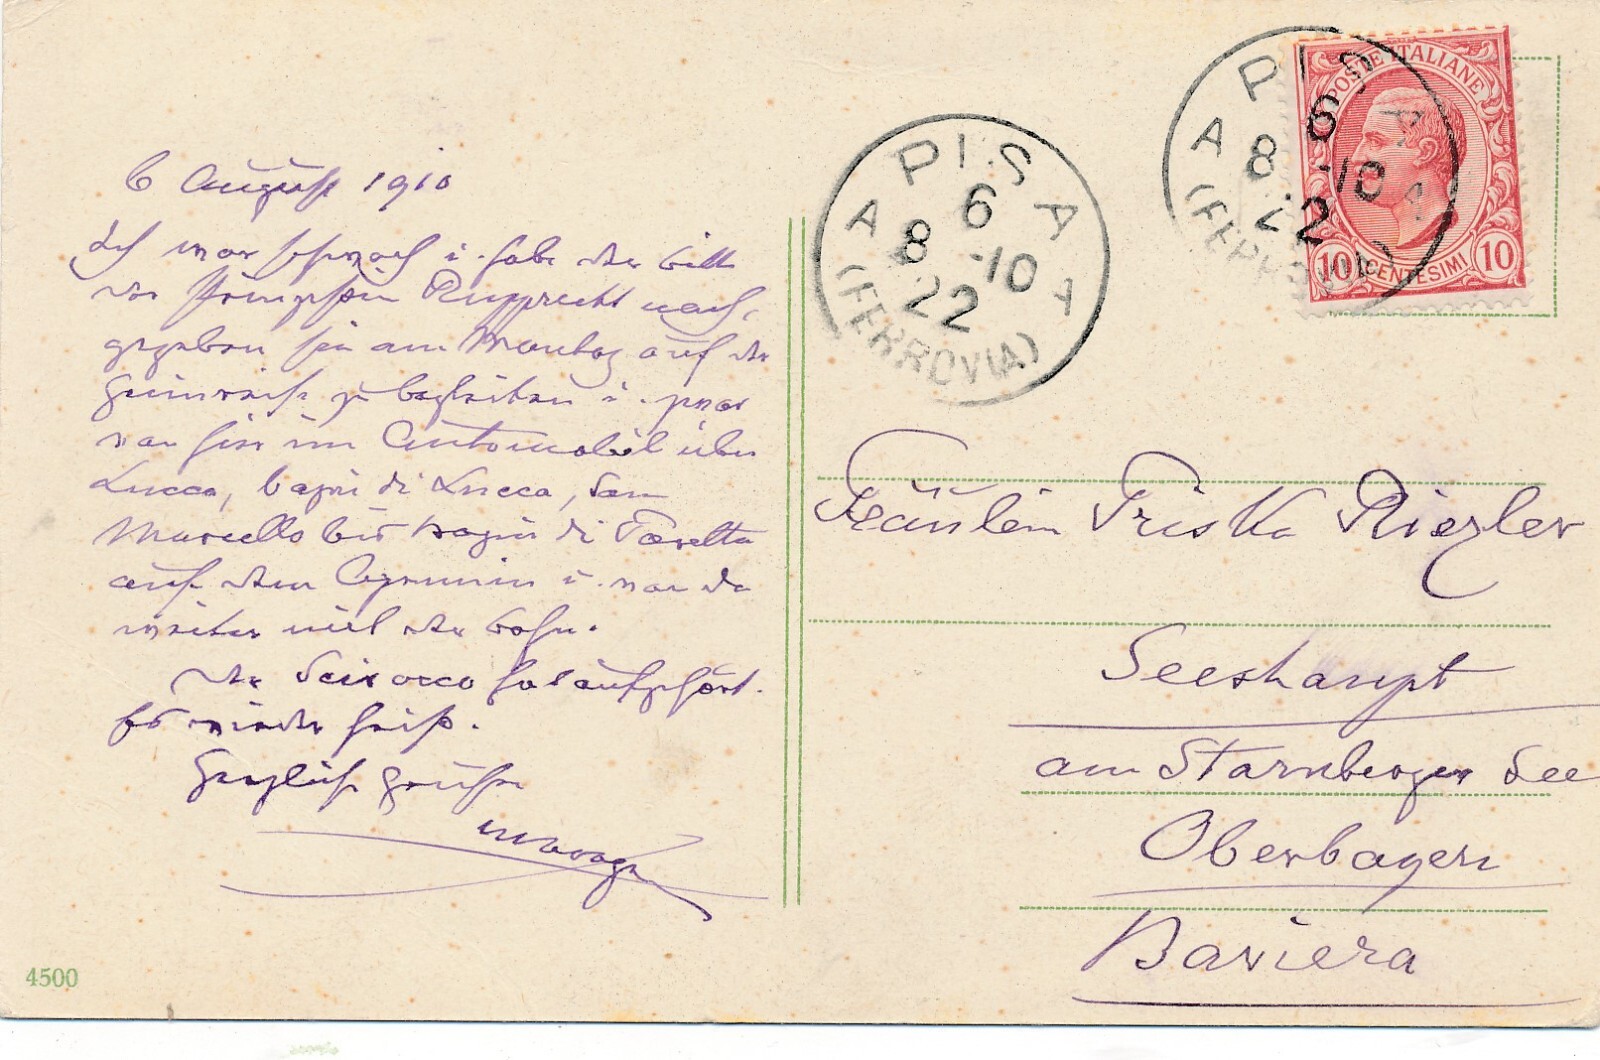 6 August 1910
Ich war schwach u. habe der Bitte
der Prinzessin Rupprecht nach-
gegeben sie am Montag auf der
Heimreise zu begleiten u. zwar
von hier im Automobil über
Lucca, bagni di Lucca, San
Marcello bis bagni di Poretta
auf dem Apennin u. von da
weiter mit der Bahn.
Der Scirocco hat aufgehört.
Es wieder heiß.
Herzliche Grüße
PISA
A A
6
8 -10
22
(FERROVIA)
PISA
A A
6
8 -10
22
(FERROVIA)
POSTE ITALIANE
10 CENTESIMI 10
Fräulein Friska Riezler
Seeshaupt
am Starnberger See
Oberbayern
Baviera
4500